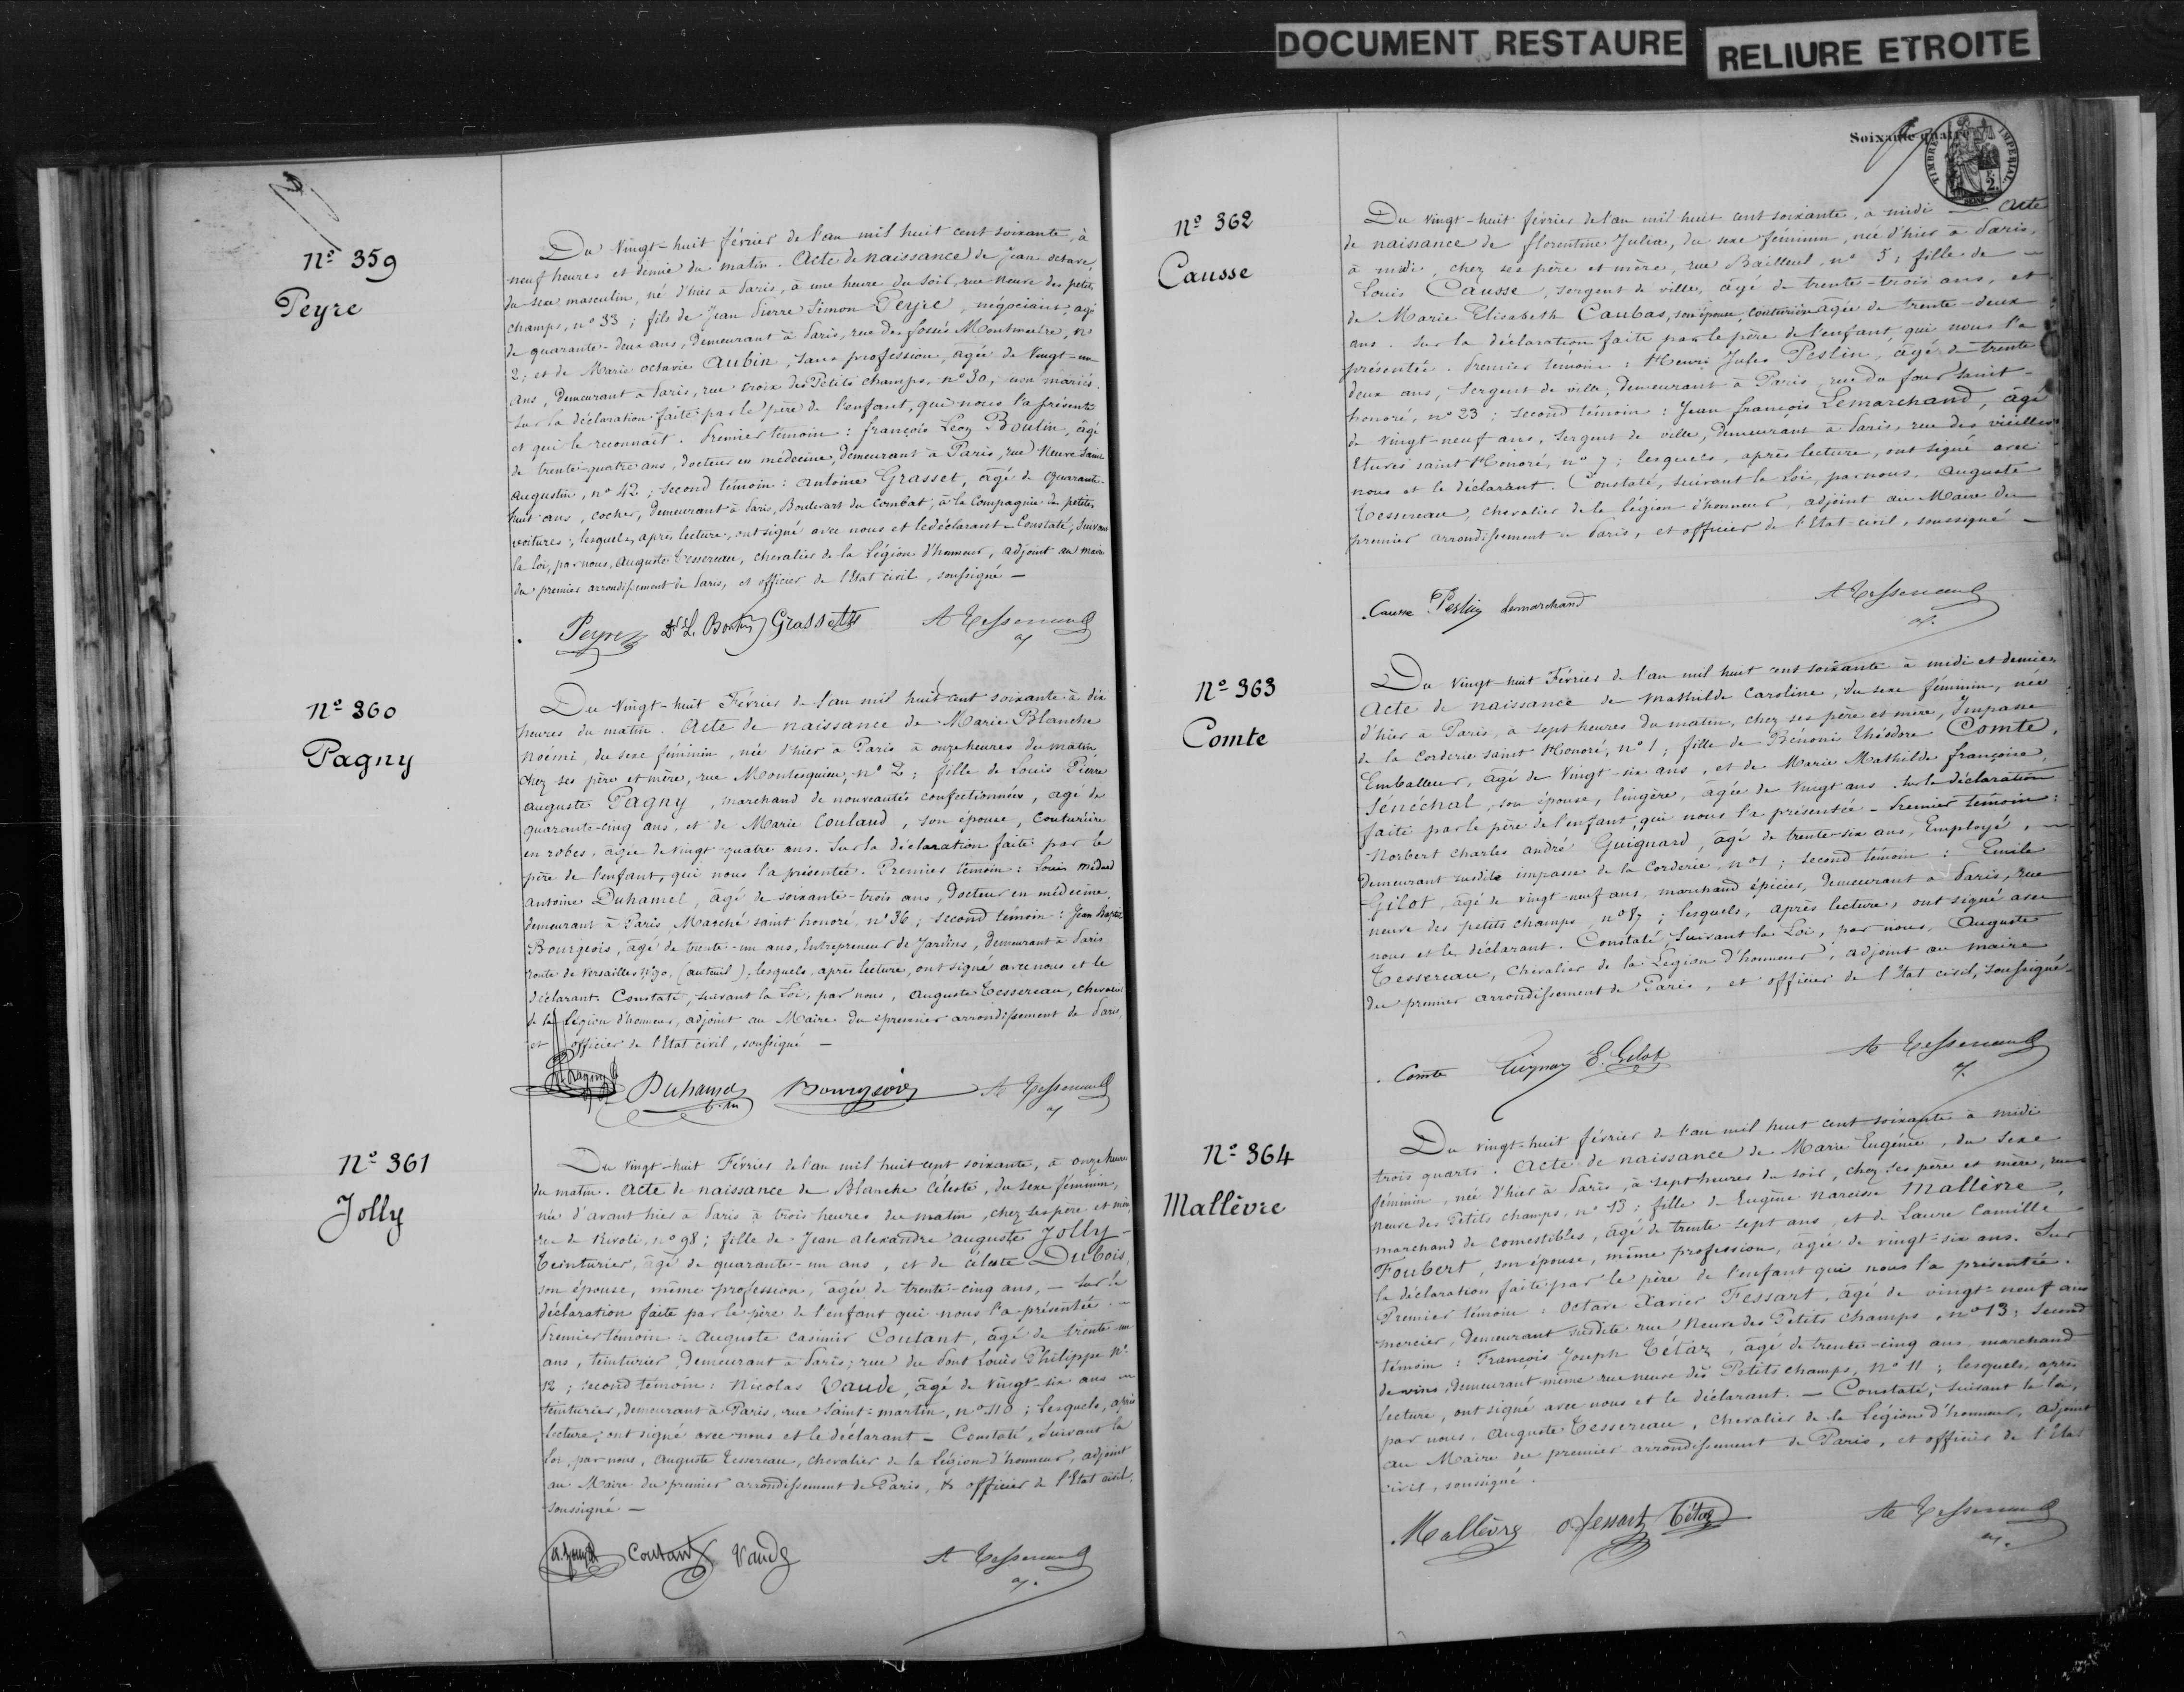 DOCUMENT RESTAURE
RELIURE ETROITE
Nº 359
Peyre
Du Vingt-huit février de l'an mil huit cent soixante, à
neuf heures et demie du matin. Acte de naissance de Jean octave,
du sexe masculin, né d'hier à Paris, à une heure du soir, rue neuve des petits
champs, nº 33; fils de Jean Pierre Simon Peyre, négociant, agé
de quarante-deux ans, demeurant à Paris, rue des fossés Montmartre, nº
2; et de Marie octavie Aubin, sans profession, âgée de Vingt-un
ans, demeurant à Paris, rue croix des Petits champs, nº 30, non mariés.
Sur la déclaration faite par le père de l'enfant, qui nous l'a présenté
et qui le reconnait. Premier temoin: françois Léon Boutin, âgé
de trente-quatre ans, docteur en médecine, demeurant à Paris, rue Neuve Saint
Augustin, nº 42; second témoin: Antoine Grasset, âgé de quarante-
huit ans, cocher, demeurant à Paris, Boulevart du Combat, à la Compagnie des petites
voitures; lesquels, après lecture, ont signé avec nous et le déclarant - Constaté, suivant
la loi, par nous, Auguste Tessereau, chevalier de la Légion d'honneur, adjoint au maire
du premier arrondissement de Paris, et officier de l'Etat civil, soussigné —
Peyre Dr L. Boutin Grasset A Tessereau
Nº 360
Pagny
Du Vingt-huit Février de l'an mil huit cent soixante à dix
heures du matin. Acte de naissance de Marie Blanche
Noémi, du sexe féminin, née d'hier à Paris à onze heures du matin,
chez ses père et mère, rue Montesquieu, nº 2; fille de Louis Pierre
Auguste Pagny, marchand de nouveautés confectionnées, âgé de
quarante-cinq ans, et de Marie Couland, son épouse, Couturière
en robes, âgée de vingt-quatre ans. Sur la déclaration faite par le
père de l'enfant, qui nous l'a présentée. Premier témoin: Louis Médard
Antoine Duhamel, âgé de soixante-trois ans, Docteur en médecine,
demeurant à Paris, Marché saint honoré, nº 36; second témoin: Jean Baptiste
Bourgeois, âgé de trente-un ans, Entrepreneur de Jardins, demeurant à Paris
route de Versailles, nº 30, (auteuil), lesquels, après lecture, ont signé avec nous et le
déclarant. Constaté, suivant la Loi, par nous, Auguste Tessereau, chevalier
de la Légion d'honneur, adjoint au Maire du premier arrondissement de Paris,
et officier de l'Etat civil, soussigné —
Pagny Duhamel Bourgeois A Tessereau
Nº 361
Jolly
Du Vingt-huit Février de l'an mil huit cent soixante, à onze heures
du matin. Acte de naissance de Blanche Céleste, du sexe féminin,
née d'avant hier à Paris à trois heures du matin, chez ses père et mère,
rue de Rivoli, nº 98; fille de Jean Alexandre Auguste Jolly -
Teinturier, âgé de quarante-un ans, et de céleste Dubois,
son épouse, même profession, âgée de trente-cinq ans, — Sur la
déclaration faite par le père de l'enfant qui nous l'a présentée. -
Premier témoin: Auguste Casimir Coutant, âgé de trente-un
ans, teinturier, demeurant à Paris; rue du Pont Louis Philippe nº
12; second témoin: Nicolas Vaude, âgé de Vingt-six ans -
teinturier, demeurant à Paris, rue Saint-martin, nº 110; lesquels, après
lecture, ont signé avec nous et le déclarant - Constaté, suivant la
loi, par nous, Auguste Tessereau, chevalier de la Légion d'honneur, adjoint
au Maire du premier arrondissement de Paris, & officier de l'Etat civil,
soussigné —
Coutant Vaude A Tessereau
Soixante quatre
TIMBRE IMPERIAL
2
Nº 362
Causse
Du Vingt-huit février de l'an mil huit cent soixante, à midi — Acte
de naissance de florentine Julia, du sexe féminin, née d'hier à Paris,
à midi, chez ses père et mère, rue Bailleul, nº 5; fille de -
Louis Causse, sergent de ville, âgé de trente-trois ans, et
de Marie Elisabeth Caubas, son épouse, couturière âgée de trente-deux
ans. Sur la déclaration faite par le père de l'enfant, qui nous l'a
présentée. Premier témoin: Henri Jules Peslin, âgé de trente
deux ans, Sergent de ville, demeurant à Paris, rue du four saint-
honoré, nº 23; second témoin: Jean françois Lemarchand, âgé
de vingt-neuf ans, sergent de ville, demeurant à Paris, rue des vieilles
Etuves saint Honoré, nº 7; lesquels, après lecture, ont signé avec
nous et le déclarant. Constaté, suivant la Loi, par nous, Auguste
Tessereau, chevalier de la légion d'honneur, adjoint au Maire du
premier arrondissement de Paris, et officier de l'Etat-civil, soussigné —
Causse Peslin Lemarchand A Tessereau
Nº 363
Comte
Du Vingt-huit Février de l'an mil huit cent soixante à midi et demie,
Acte de naissance de Mathilde Caroline, du sexe féminin, née
d'hier à Paris, à sept heures du matin, chez ses père et mère, Impasse
de la Corderie saint Honoré, nº 1; fille de Bénoni Théodore Comte,
Emballeur, âgé de Vingt-six ans, et de Marie Mathilde françoise,
Sénéchal, son épouse, lingère, âgée de Vingt ans. Sur la déclaration
faite par le père de l'enfant, qui nous l'a présentée - Premier témoin:
Norbert Charles André Guignard, âgé de trente-six ans, Employé, -
demeurant susdite impasse de la Corderie, nº 1; second témoin: Emile
Gilot, âgé de vingt-neuf ans, marchand épicier, demeurant à Paris, rue
neuve des petits champs, nº 87; lesquels, après lecture, ont signé avec
nous et le déclarant. Constaté, suivant la Loi, par nous, Auguste
Tessereau, Chevalier de la Légion d'honneur, adjoint au maire
du premier arrondissement de Paris, et officier de l'Etat civil, soussigné -
Comte E. Gilot A Tessereau
Nº 364
Mallèvre
Du vingt-huit février de l'an mil huit cent soixante à midi
trois quarts. Acte de naissance de Marie Eugénie, du sexe
féminin, née d'hier à Paris, à sept heures du soir, chez ses père et mère, rue
Neuve des Petits champs, nº 13; fille de Eugène Narcisse Mallèvre,
marchand de comestibles, âgé de trente-sept ans, et de Laure Camille
Foubert, son épouse, même profession, âgée de vingt-six ans. Sur
la déclaration faite par le père de l'enfant qui nous l'a présentée.
Premier témoin: Octave Xavier Fessart, âgé de vingt-neuf ans
mercier, demeurant susdite rue Neuve des Petits champs, nº 13; second
témoin: François Joseph Tétaz, âgé de trente-cinq ans, marchand
de vins, demeurant même rue neuve des Petits champs, Nº 11; lesquels, après
lecture, ont signé avec nous et le déclarant. — Constaté, suivant la loi,
par nous, Auguste Tessereau, chevalier de la Légion d'honneur, adjoint
au Maire du premier arrondissement de Paris, et officier de l'Etat
civil, soussigné.
Mallèvre O Fessart Tétaz A Tessereau